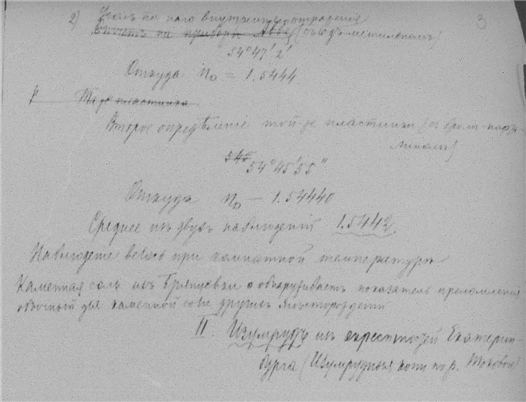 2) Уголъ полнаго внутренняго отраженія 3
Опытъ на приборѣ Аббе (съ іодъ-метиленомъ)
54°47'2'
Откуда n_D = 1.5444
Та же пластинка
Второе опредѣленіе той же пластинки (съ бром-нафта-
линомъ)
54°45'55"
Откуда n_D — 1.54440
Среднее изъ двухъ наблюденій 1.5442.
Наблюденіе велось при комнатной температурѣ
Каменная соль изъ Брянцевки обнаруживаетъ показатель преломленія
обычный для каменной соли другихъ мѣсторожденій
II Изумрудъ изъ окрестностей Екатерин-
бурга (Изумрудныя копи по р. Токовой)